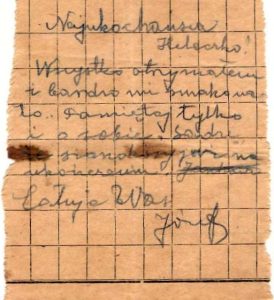 Najukochańsza
Helečko!
Wszystko otrzymałem
i bardzo mi smakowa
ło. Pamiętaj tylko
i o sobie.
ukończeniu
Całuję Was
Józef